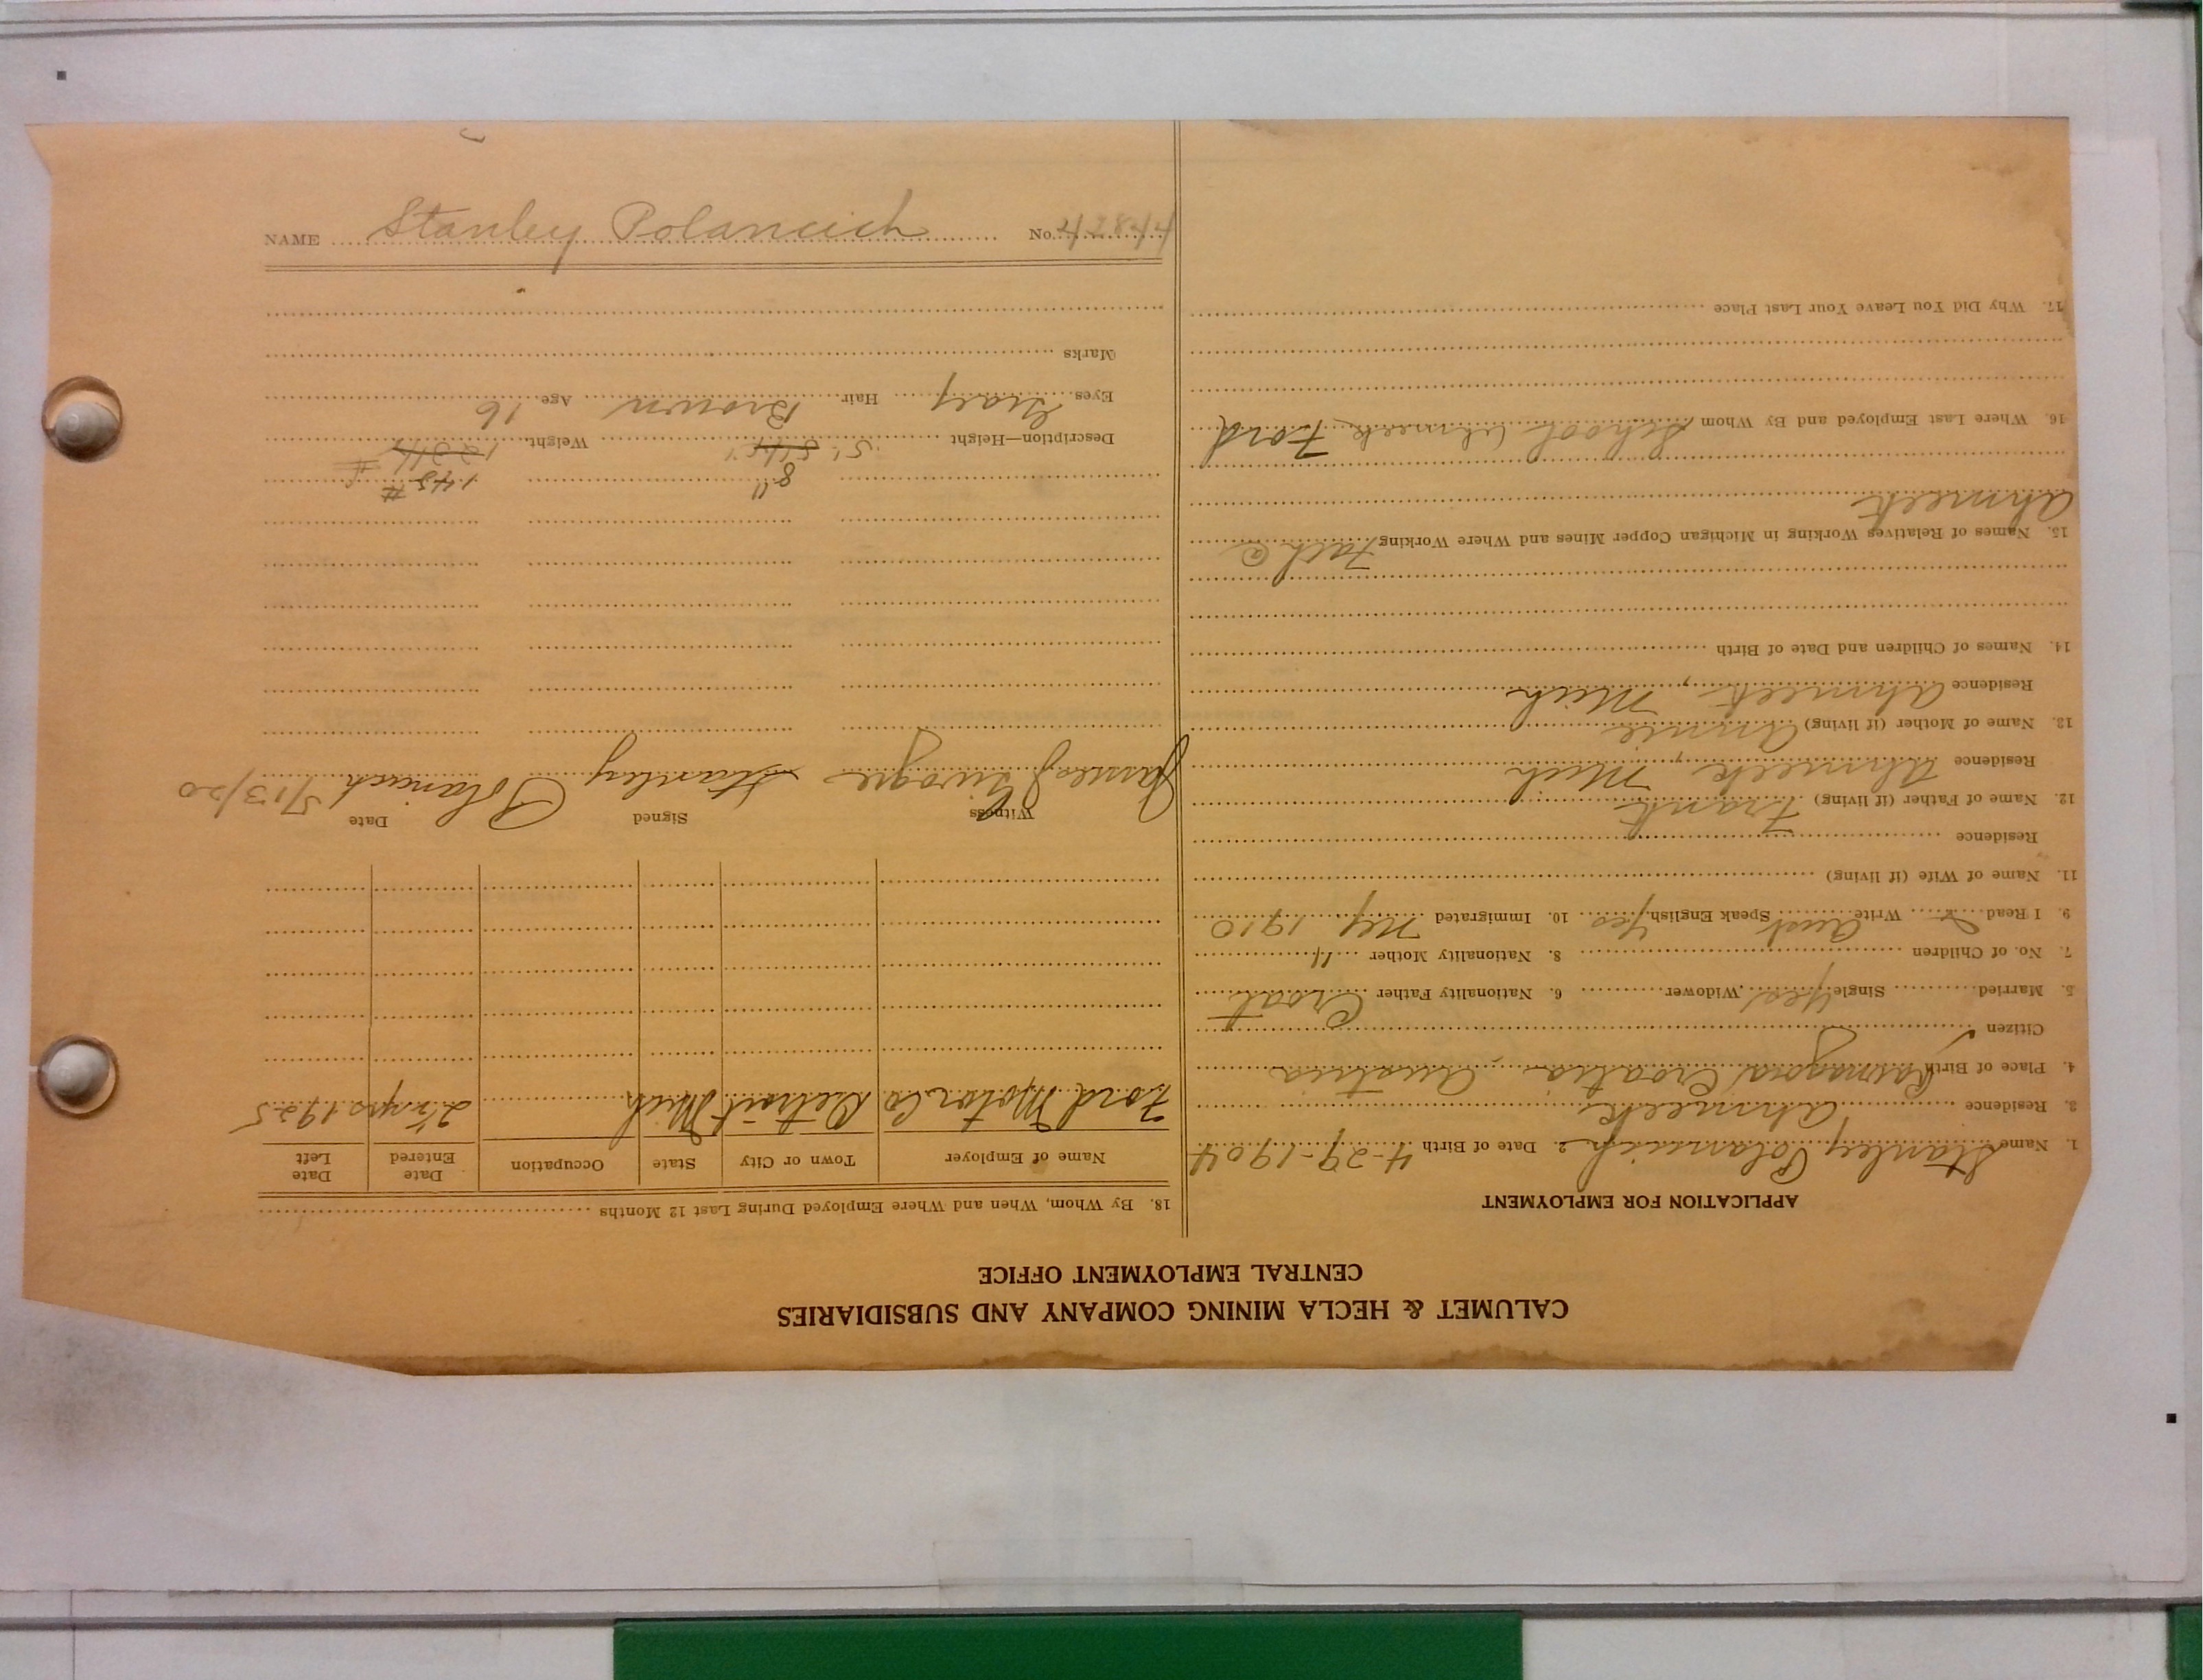 NAME Stanley Polancich No. 42844
CALUMET & HECLA MINING COMPANY AND SUBSIDIARIES
CENTRAL EMPLOYMENT OFFICE
APPLICATION FOR EMPLOYMENT
1. Name Stanley Polancich 2. Date of Birth 4-29-1904
3. Residence Ahmeek
4. Place of Birth Croatia, Austria
Citizen
5. Married Single Yes Widower 6. Nationality Father Croat
7. No. of Children 8. Nationality Mother "
9. I Read Write Aust Speak English Yes 10. Immigrated NY 1910
11. Name of Wife (if living)
Residence
12. Name of Father (if living) Frank
Residence Ahmeek Mich
13. Name of Mother (if living) Annie
Residence Ahmeek, Mich
14. Names of Children and Date of Birth
15. Names of Relatives Working in Michigan Copper Mines and Where Working Fath @
Ahmeek
16. Where Last Employed and By Whom School Ahmeek Ford
17. Why Did You Leave Your Last Place
18. By Whom, When and Where Employed During Last 12 Months
Name of Employer Town or City State Occupation Date Entered Date Left
Ford Motor Co Detroit Mich 2½ yrs 1925
Witness Signed Date
James J Stanley Polancich 5/13/20
8" 145 #
Description—Height 5' Weight
Eyes Gray Hair Brown Age 16
Marks